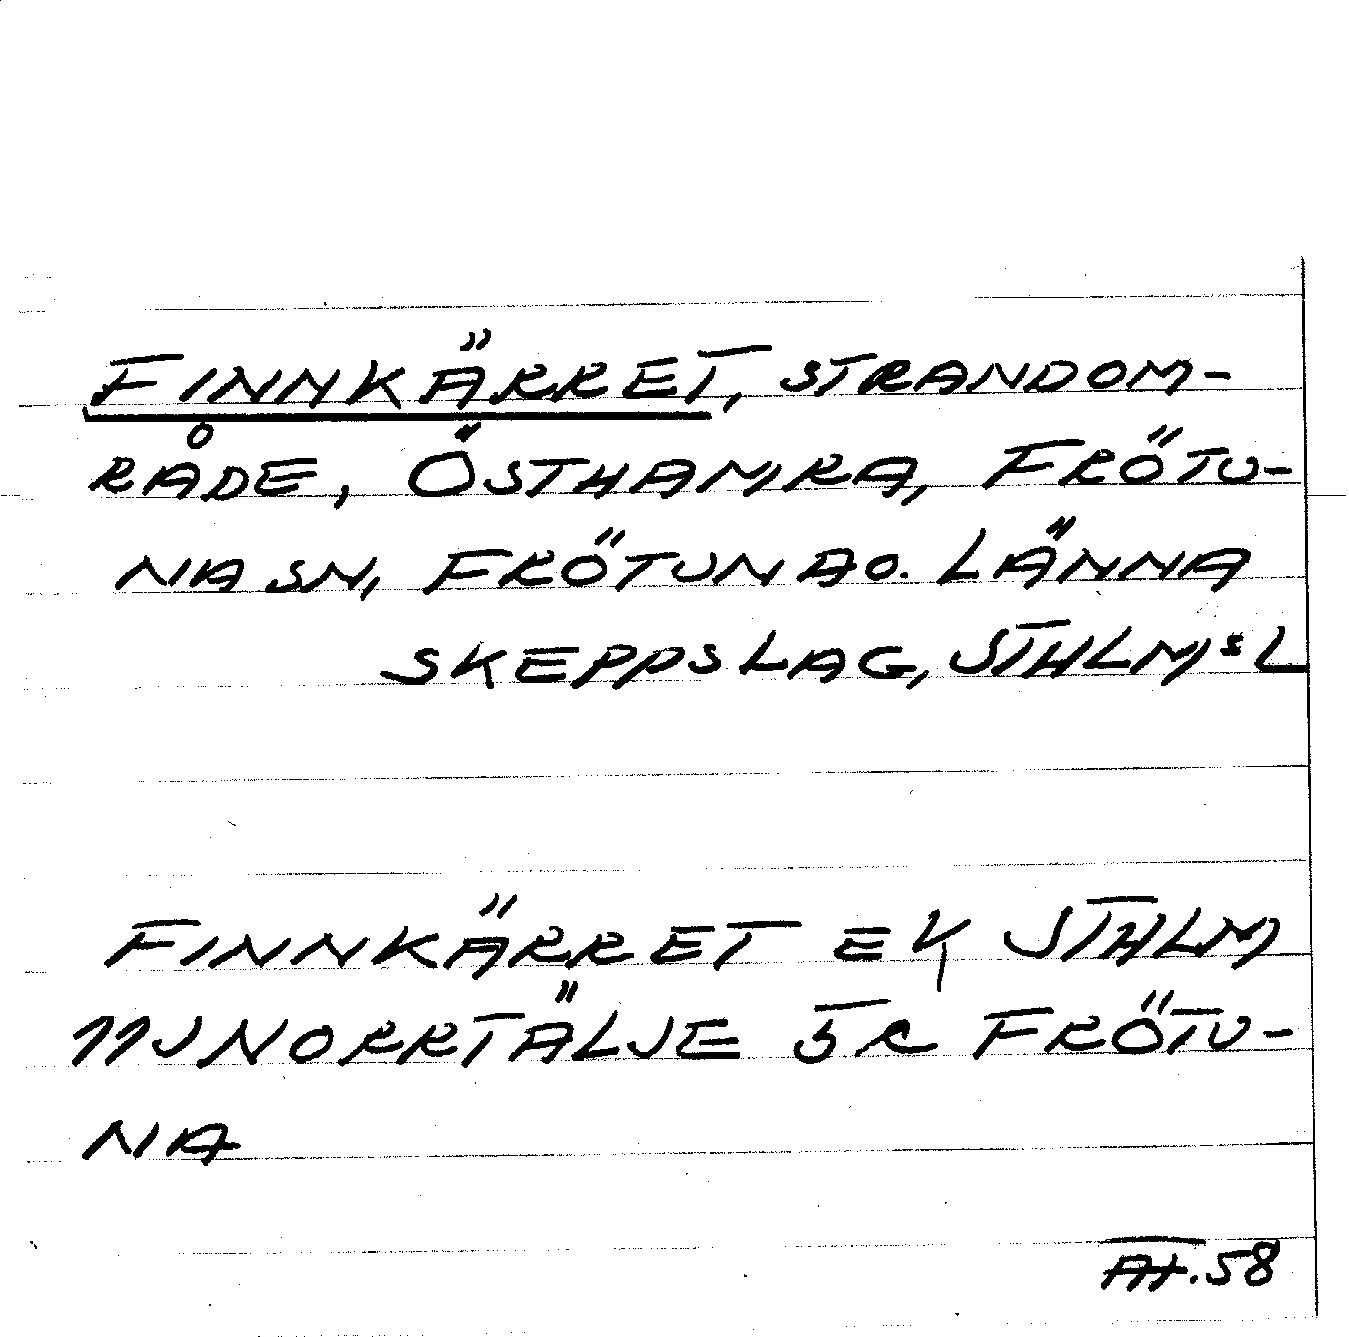 FINNKÄRRET, STRANDOM-
RÅDE, ÖSTHAMRA, FRÖTU-
NA SN, FRÖTUNA O. LÄNNA
SKEPPSLAG, STHLMS L
FINNKÄRRET EK STHLM
11J NORRTÄLJE 5 c FRÖTU-
NA
58